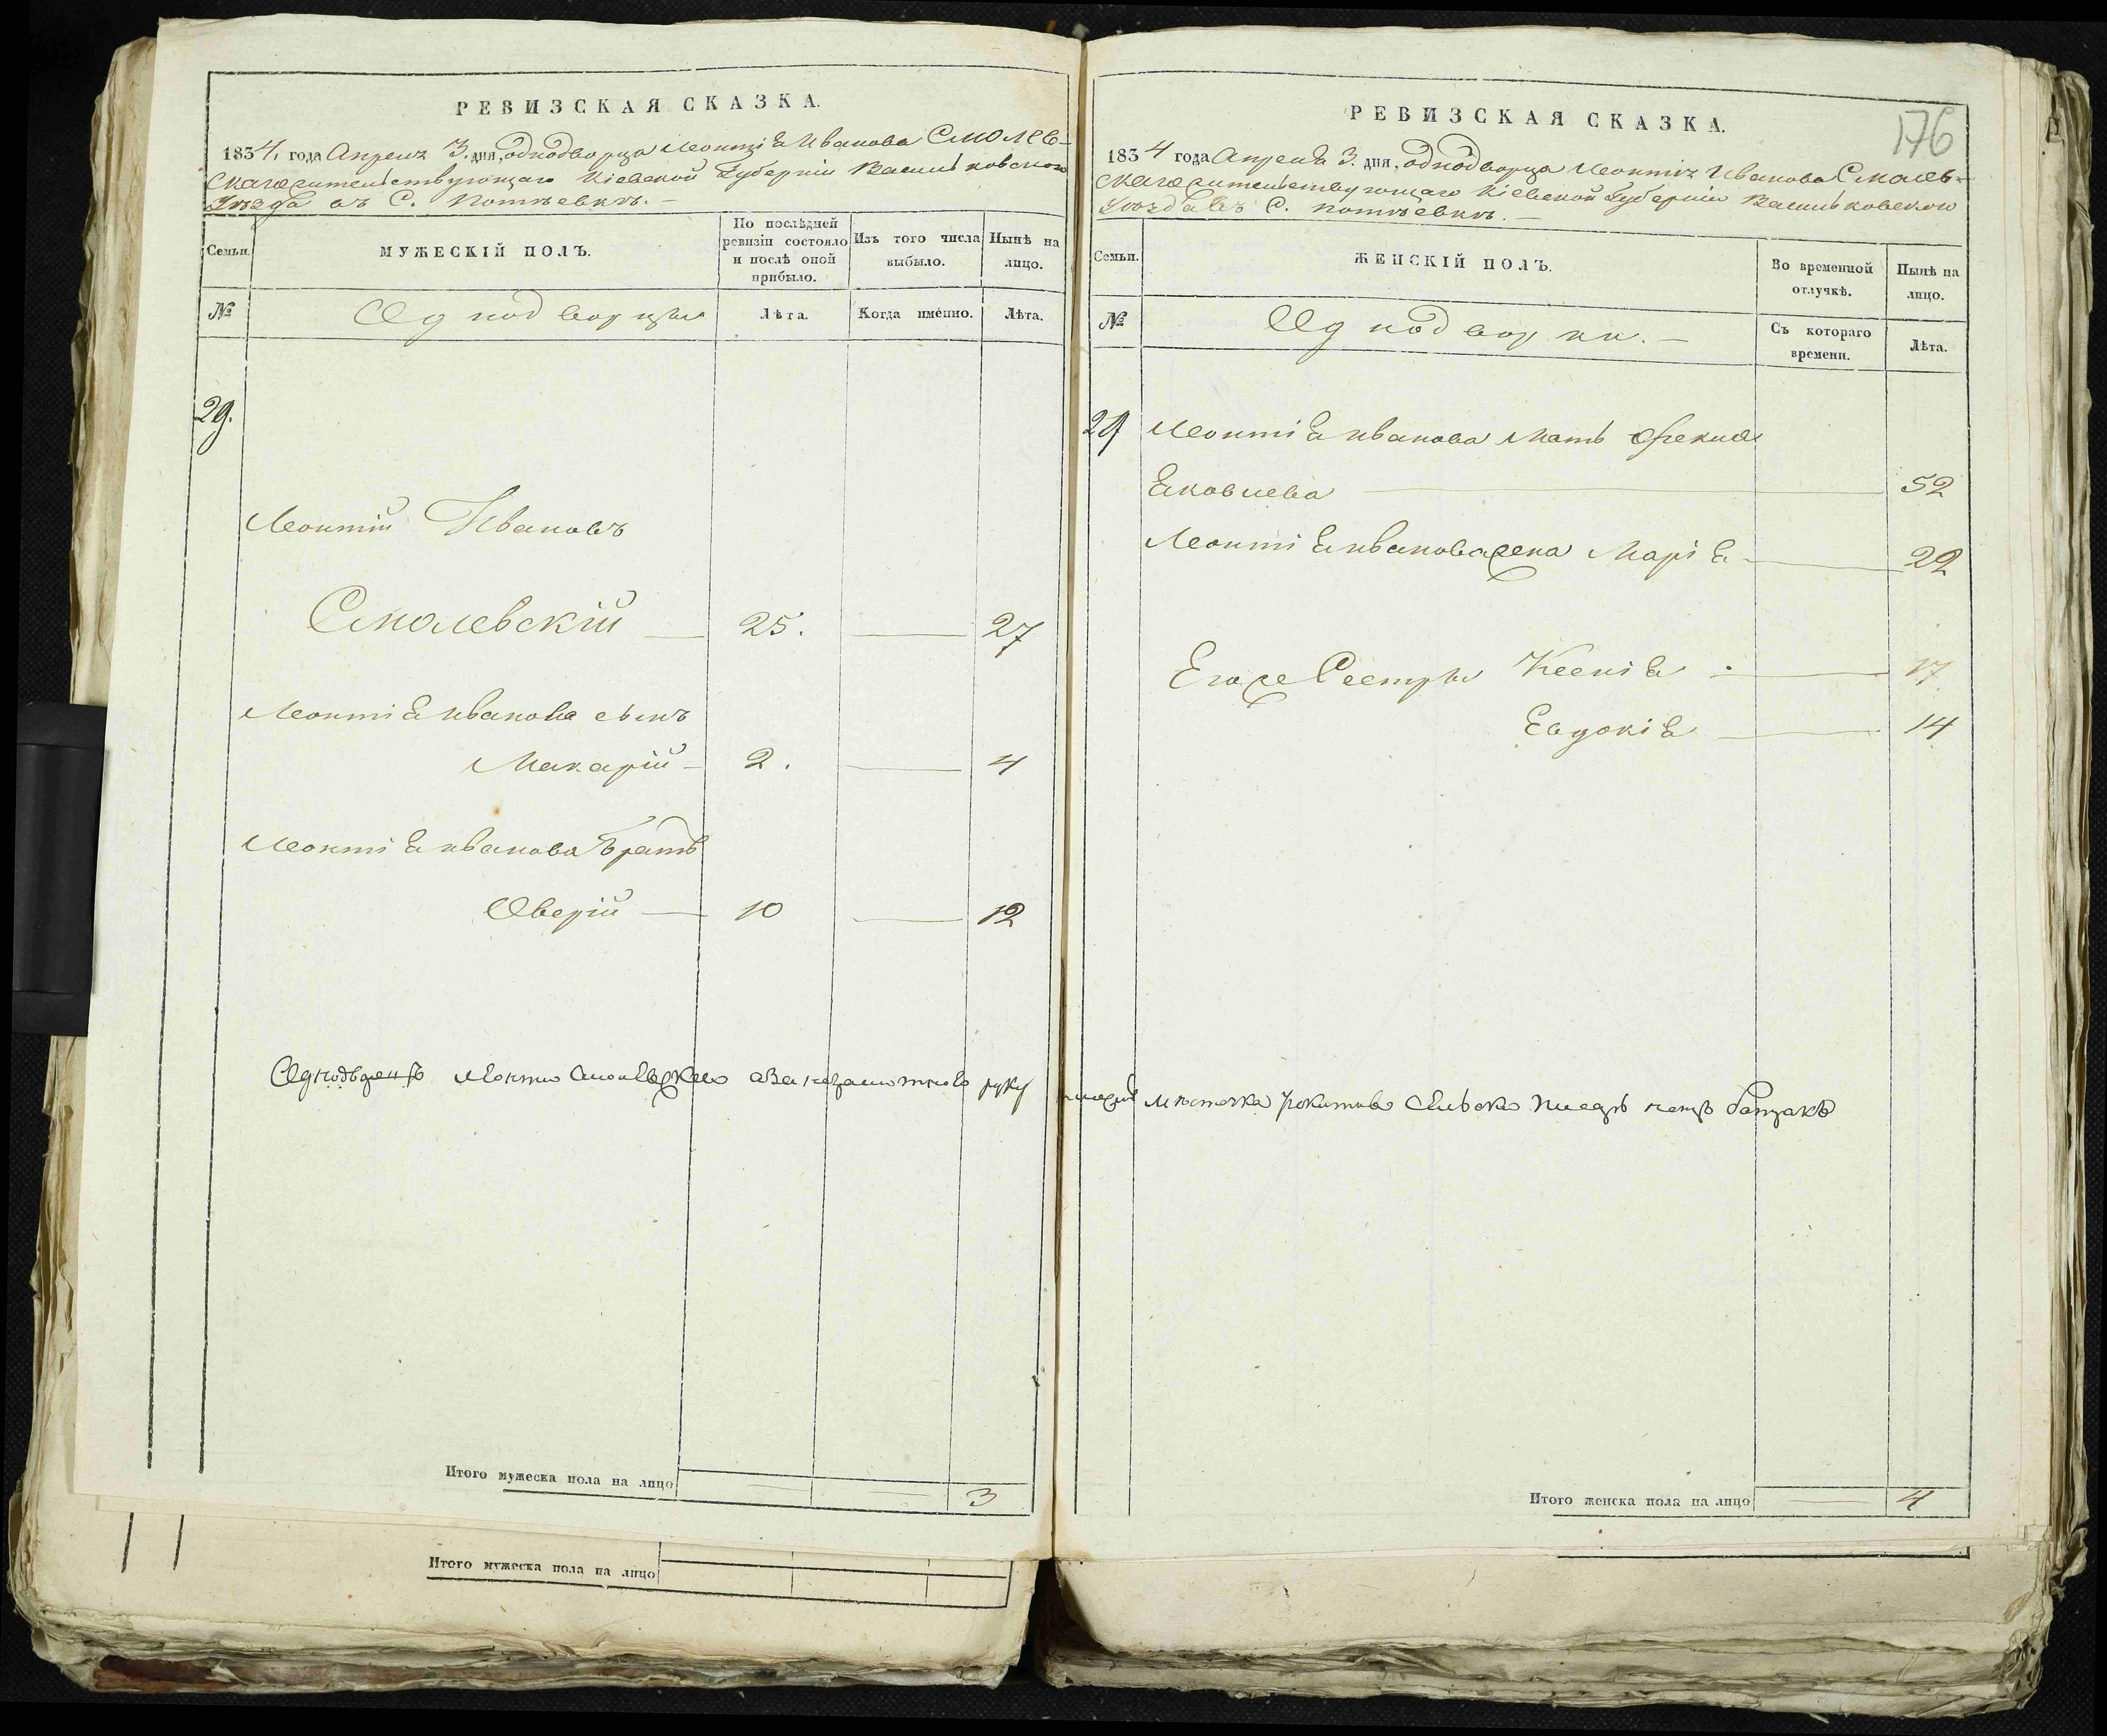 РЕВИЗСКАЯ СКАЗКА.
1834. года Апреля 3. дня, однодворца Леонтія Иванова Смолев-
скаго жительствующаго Кіевской Губерніи Васильковского
Уезда въ С. Потіевкъ. –
Семьи.
МУЖЕСКІЙ ПОЛЪ.
По послѣдней ревизіи состояло и послѣ оной прибыло.
Изъ того числа выбыло.
Нынѣ на лицо.
№
Однодворцы
Лѣта.
Когда имѣнно.
Лѣта.
29.
Леонтій Ивановъ
Смолевскій — 25. — 27
Леонтія Иванова сынъ
Макарій – 2. — 4
Леонтія Иванова братъ
Оверій — 10 — 12
Итого мужеска пола на лицо — — 3
Итого мужеска пола на лицо
176
РЕВИЗСКАЯ СКАЗКА.
1834 года Апреля 3. дня, однодворца Леонтія Иванова Смолев-
скаго жительствующаго Кіевской Губерніи Васильковской
Уезда въ С. Потіевкъ. –
Семьи.
ЖЕНСКІЙ ПОЛЪ.
Во временной отлучкѣ.
Нынѣ на лицо.
№
Однодворки. –
Съ котораго времени.
Лѣта.
29 Леонтія Иванова Мать
Яковлева — 52
Леонтія Иванова жена Марія — 22
Его же Сестры Ксенія — 17
Евдокія — 14
Однодворецъ Леонтий руку
Итого женска пола на лицо — 4